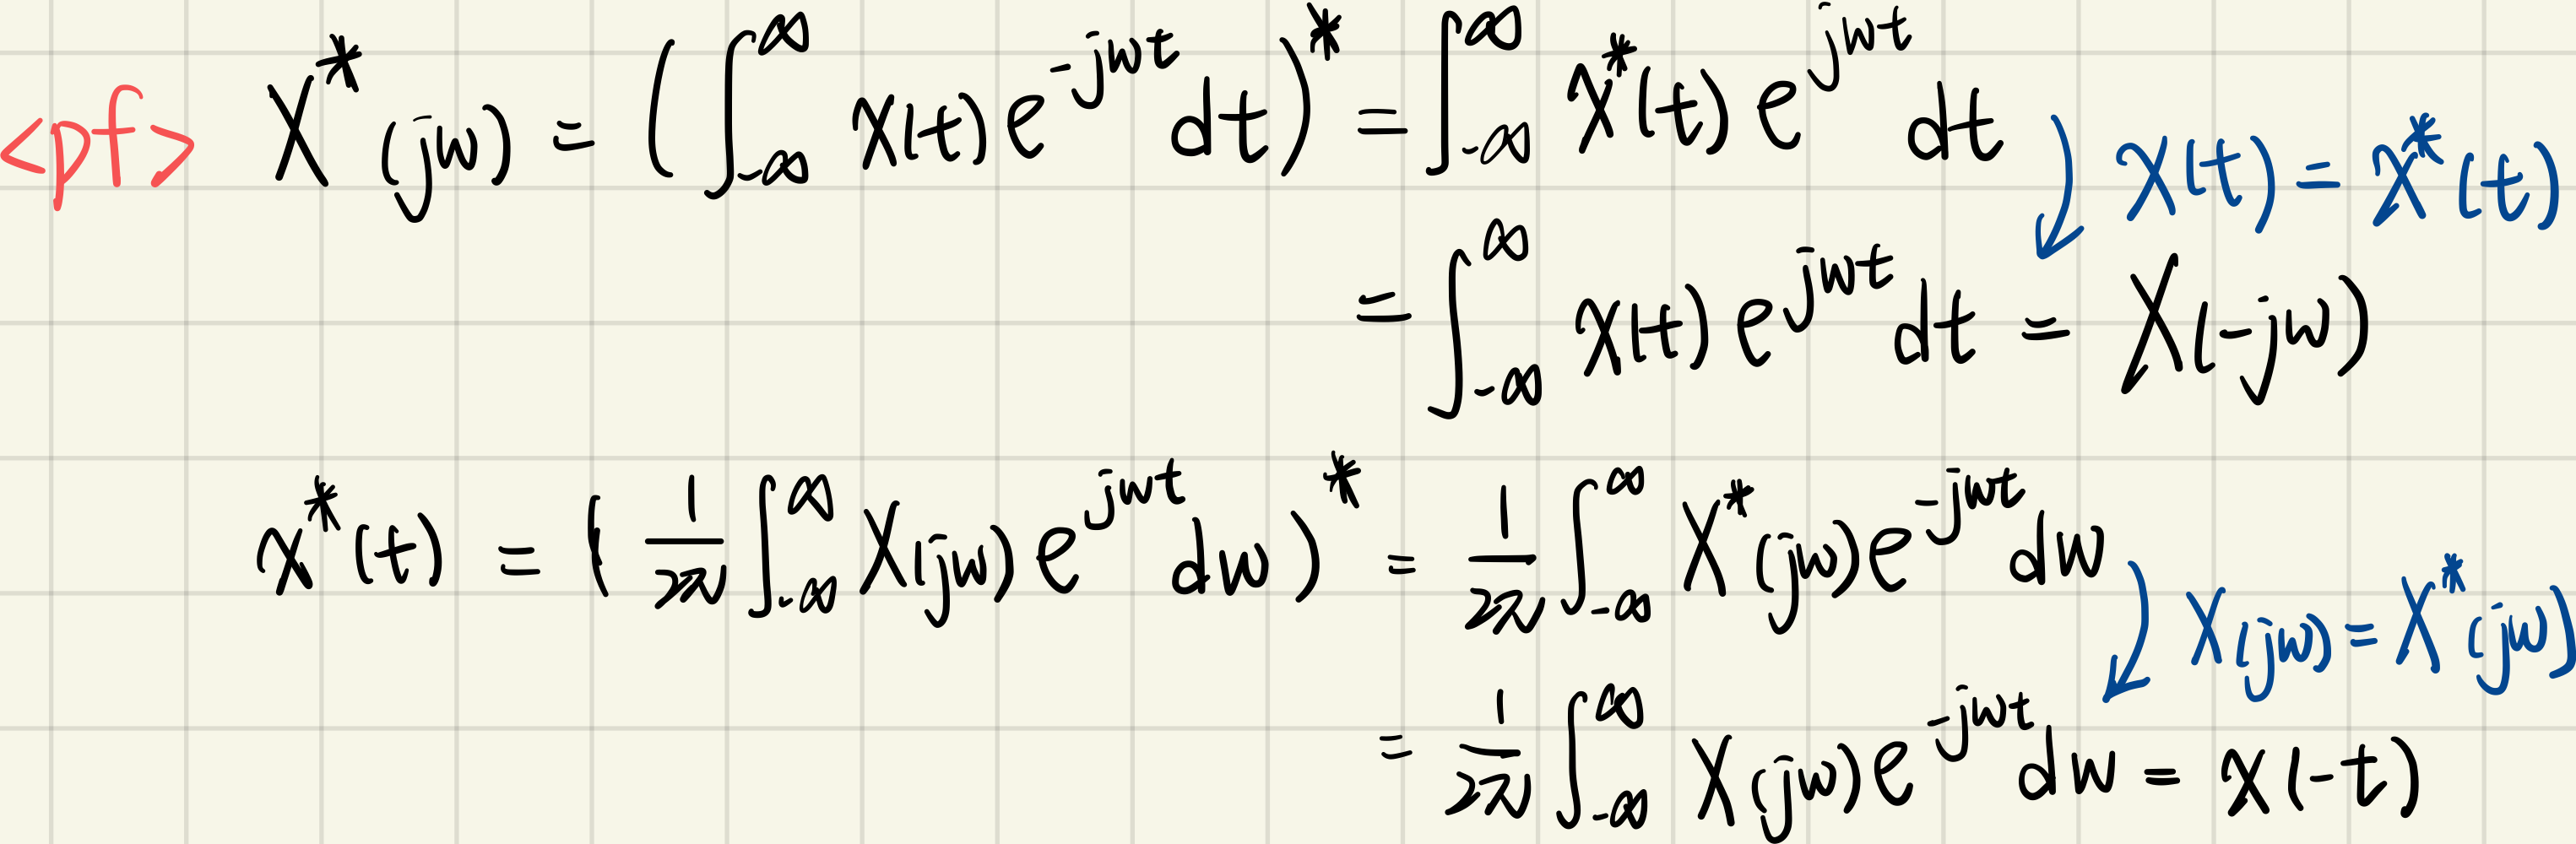 <pf> X*(jw) = (∫_{-∞}^{∞} x(t) e^{-jwt} dt)* = ∫_{-∞}^{∞} x*(t) e^{jwt} dt
x(t) = x*(t)
= ∫_{-∞}^{∞} x(t) e^{jwt} dt = X(-jw)
x*(t) = (1/2π ∫_{-∞}^{∞} X(jw) e^{jwt} dw)* = 1/2π ∫_{-∞}^{∞} X*(jw) e^{-jwt} dw
X(jw) = X*(jw)
= 1/2π ∫_{-∞}^{∞} X(jw) e^{-jwt} dw = x(-t)